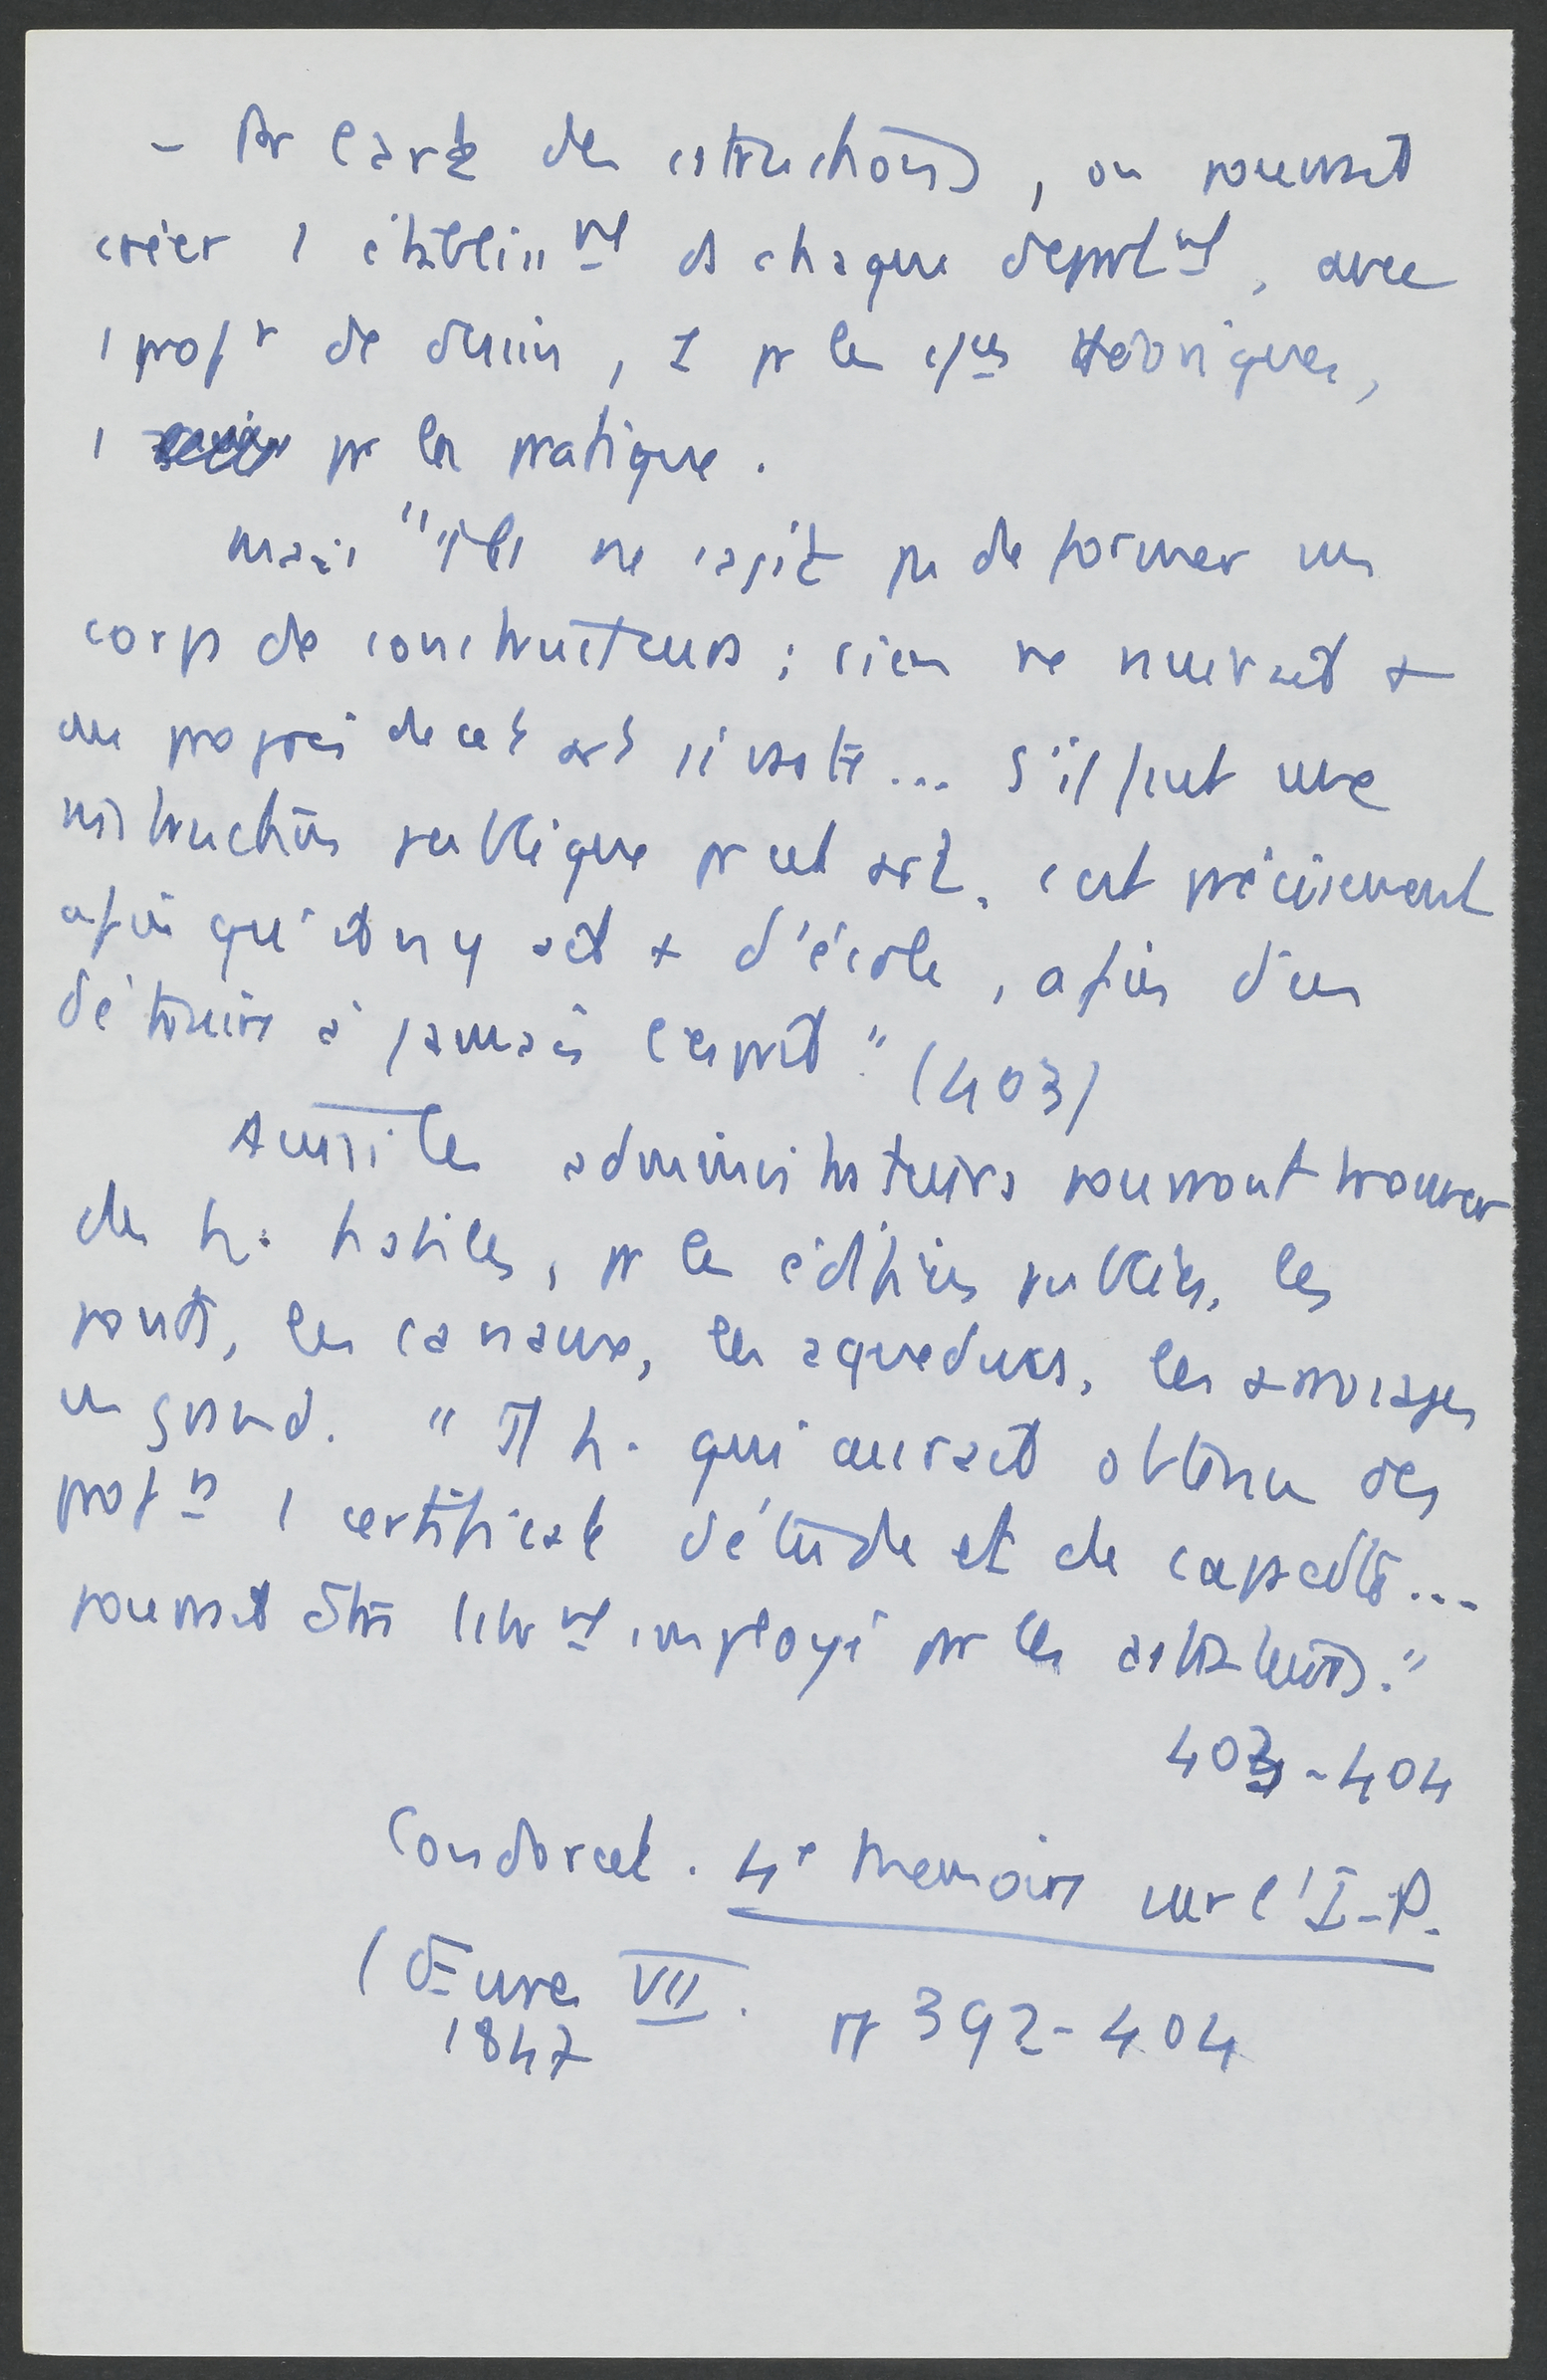 - Pr l'art des cstructions, on pourrait
créer 1 établisst ds chaque deprtmt, avec
1 profr de dessin, 1 pr les cces théoriques,
1 pr la pratique.
Mais "il ne s'agit pas de former un
corps de constructeurs ; rien ne nuirait +
au progrès de cet art si vaste... S'il faut une
instruction publique pr cet art, c'est précisément
afin qu'il n'y ait + d'école, afin d'en
détruire à jamais l'esprit." (403)
Aussi les administrateurs pourront trouver
des h. habiles, pr les édifices publics, les
ponts, les canaux, les aqueducs, les arrosages
en grand. "Tt h. qui aurait obtenu des
profrs 1 certificat d'étude et de capacité...
pourrait être librmt employé par les
403-404
Condorcet. 4e Mémoire sur l'I-P.
(Œuvres VII. pp 392-404
1847